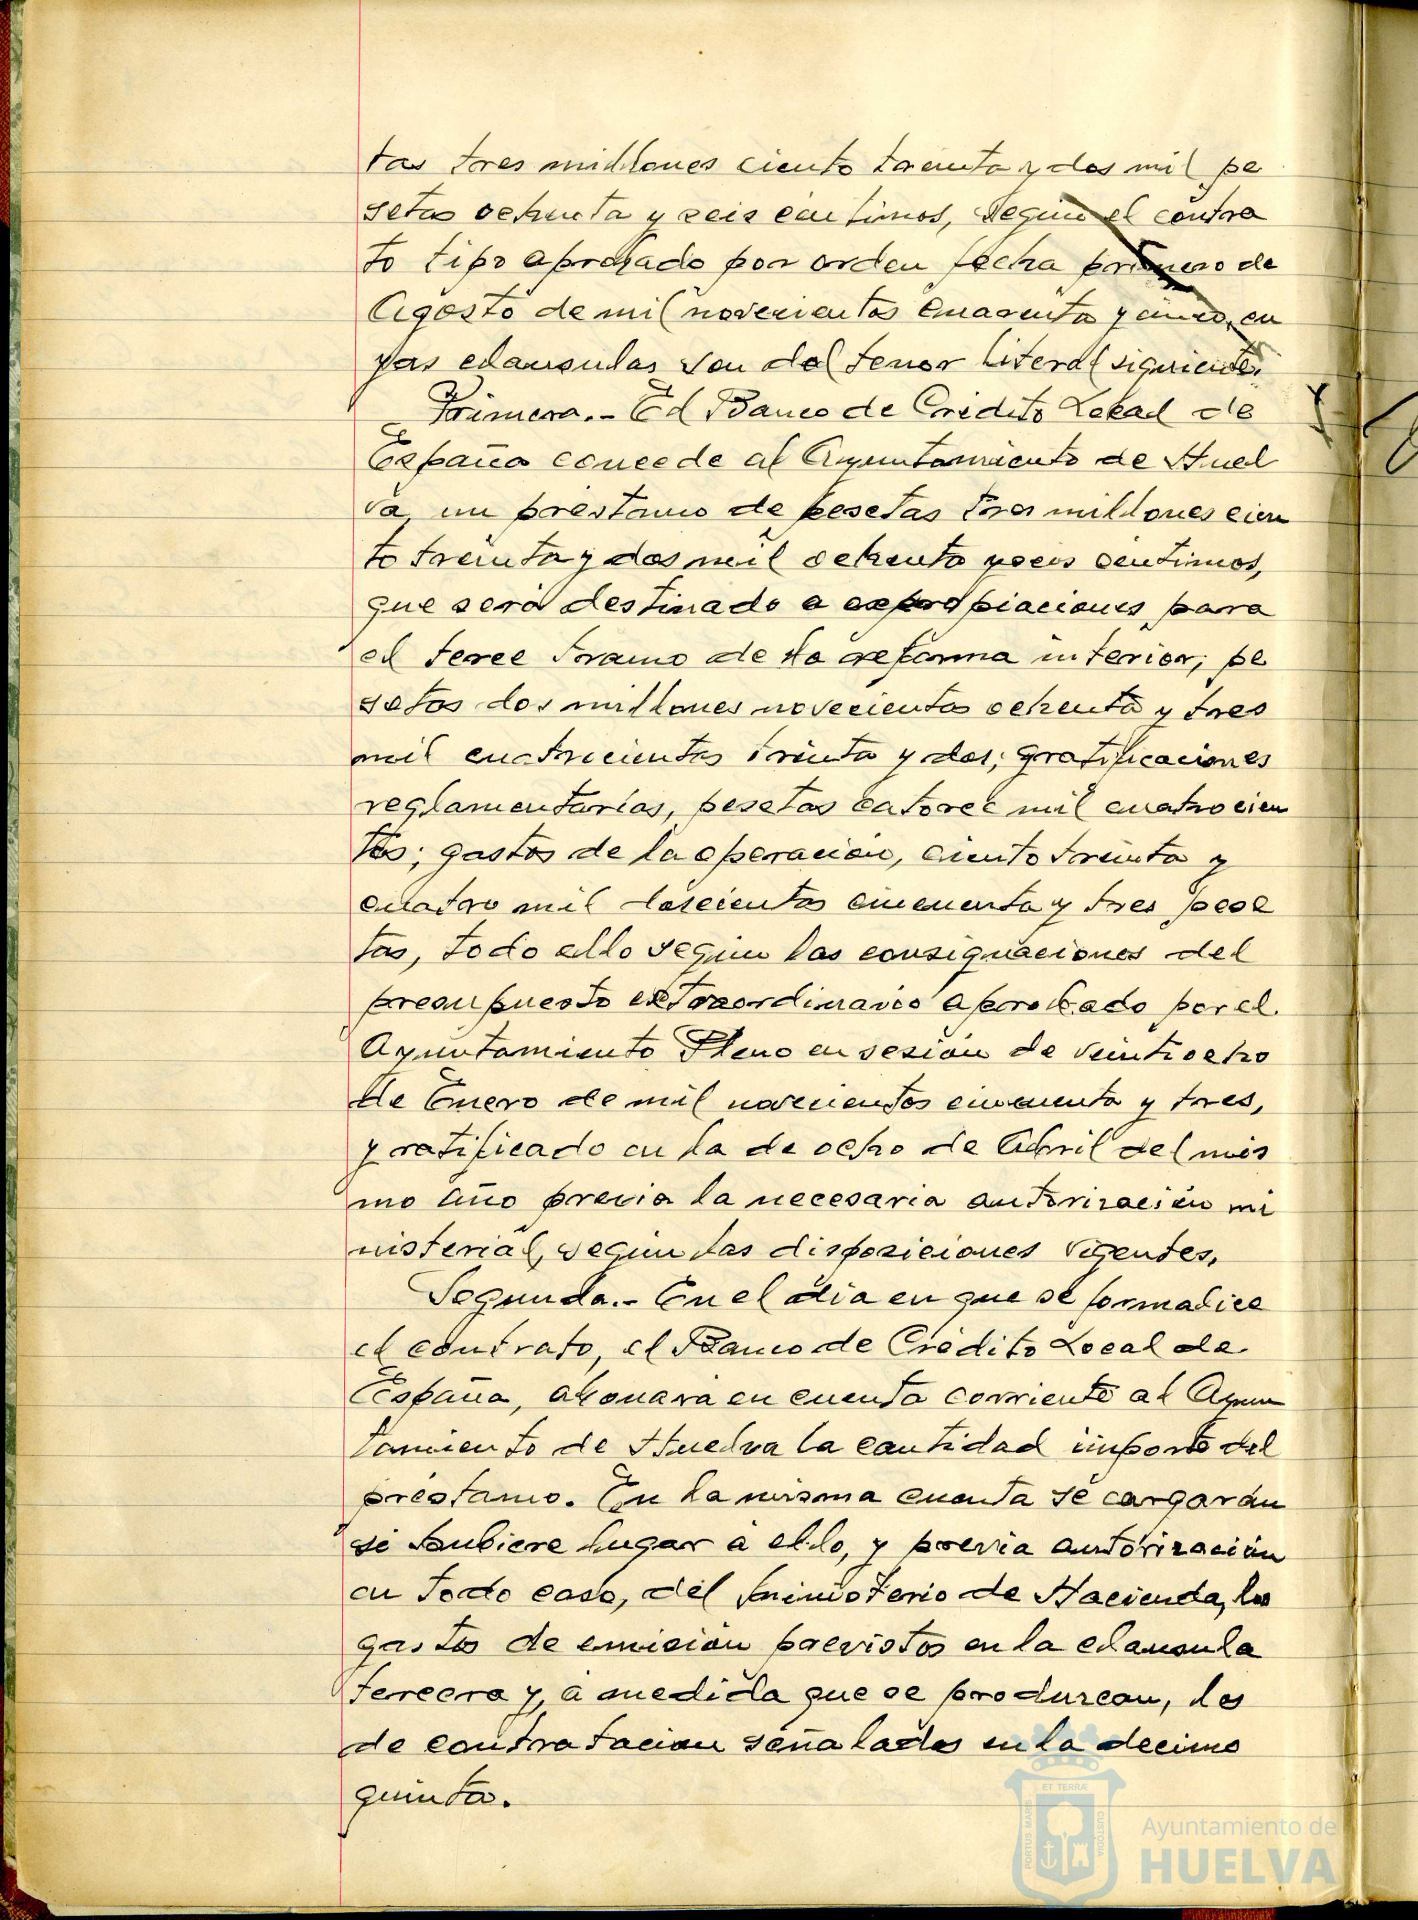 tas tres millones ciento treinta y dos mil pe
setas ochenta y seis centimos, según el contra
to tipo aprobado por orden fecha primero de
Agosto de mil novecientos cuarenta y cinco, cu
yas clausulas son del tenor literal siguiente.
Primera.- El Banco de Crédito Local de
España concede al Ayuntamiento de Huel
va, un préstamo de pesetas tres millones cien
to treinta y dos mil ochenta y seis centimos,
que será destinado a expropiaciones para
el terce tramo de la reforma interior; pe
setas dos millones novecientas ochenta y tres
mil cuatrocientas trinta y dos; gratificaciones
reglamentarias, pesetas catorce mil cuatrocien
tas; gastos de la operación, ciento treinta y
cuatro mil doscientas cincuenta y tres pese
tas, todo ello según las consignaciones del
presupuesto extraordinario aprobado por el
Ayuntamiento Pleno en sesión de veintiocho
de Enero de mil novecientos cincuenta y tres,
y ratificado en la de ocho de Abril del mis
mo año previa la necesaria autorización mi
nisterial, según las disposiciones vigentes.
Segunda.- En el día en que se formalice
el contrato, el Banco de Crédito Local de
España, abonará en cuenta corriente al Ayun
tamiento de Huelva la cantidad importe del
préstamo. En la misma cuenta se cargarán
si hubiere lugar a ello, y previa autorización
en todo caso, del Ministerio de Hacienda, los
gastos de emisión previstos en la clausula
tercera y, a medida que se produzcan, los
de contratacion señalados en la decimo
quinta.
PORTUS MARIS
ET TERRÆ
CUSTODIA
Ayuntamiento de
HUELVA